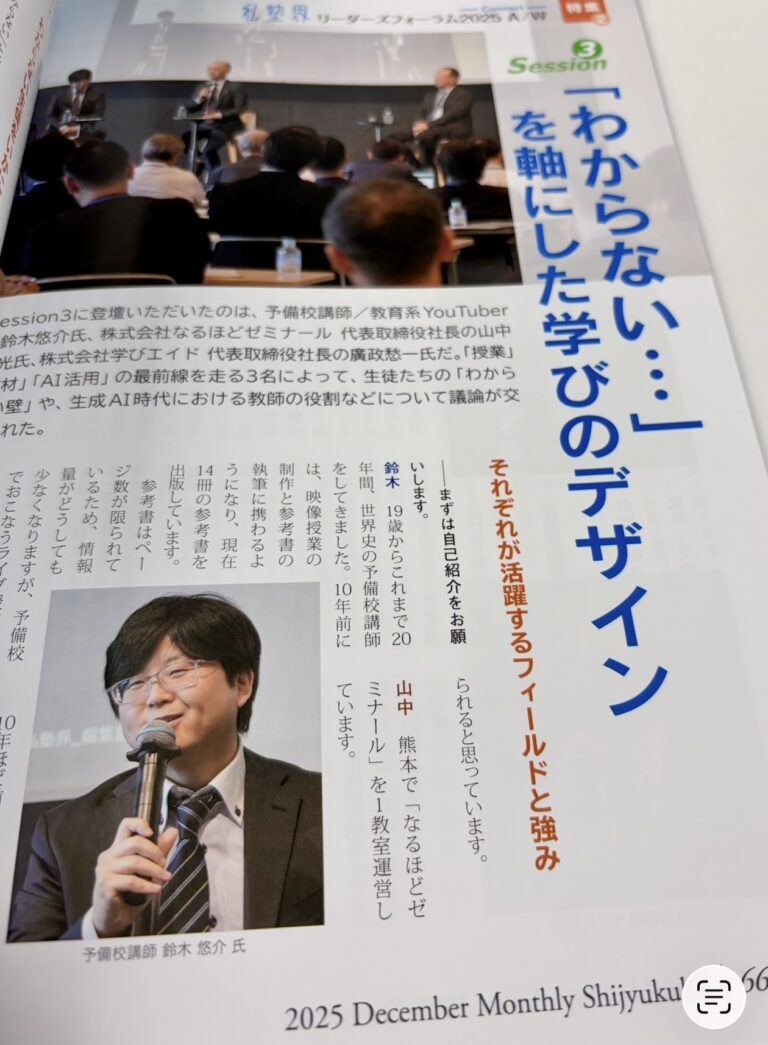 私塾界 リーダーズフォーラム2025 A/W
Connect
特集
Session 3
「わからない…」
を軸にした学びのデザイン
ession3に登壇いただいたのは、予備校講師／教育系YouTuber
鈴木悠介氏、株式会社なるほどゼミナール 代表取締役社長の山中
光氏、株式会社学びエイド 代表取締役社長の廣政愁一氏だ。「授業」
材」「AI活用」の最前線を走る3名によって、生徒たちの「わから
い壁」や、生成AI時代における教師の役割などについて議論が交
れた。
それぞれが活躍するフィールドと強み
――まずは自己紹介をお願
いします。
鈴木　19歳からこれまで20
年間、世界史の予備校講師
をしてきました。10年前に
は、映像授業の
制作と参考書の
執筆に携わるよ
うになり、現在
14冊の参考書を
出版しています。
参考書はペー
ジ数が限られて
いるため、情報
量がどうしても
少なくなりますが、予備校
でおこなうライブ
られると思っています。
山中　熊本で「なるほどゼ
ミナール」を1教室運営し
ています。
予備校講師 鈴木 悠介 氏
2025 December Monthly Shijyuku
66